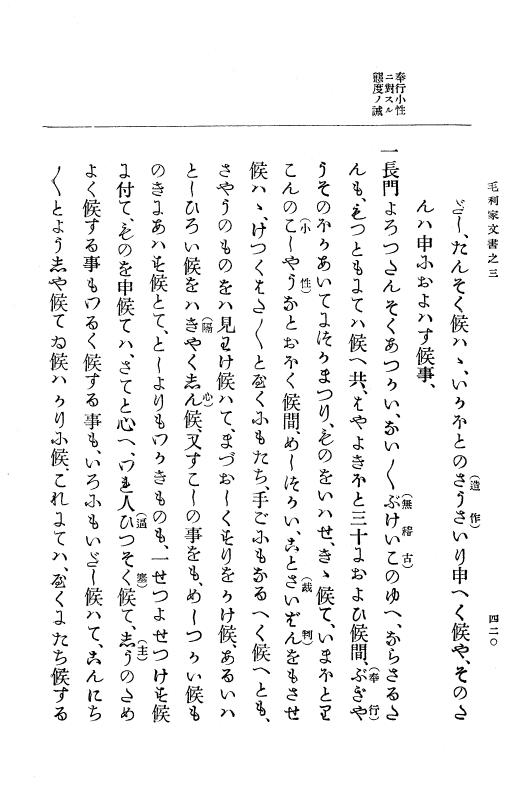 毛利家文書之三
四二〇
奉行小性
ニ對スル
態度ノ誡
さし、たんそく候ハヽ、いかほとのさうさ(造作)いり申へく候や、そのさ
んハ申におよハす候事、
一長門よろつさんそくあつかい、ない〳〵ぶけいこ(無稽古)のゆへ、ならさるさ
んも、もつともにてハ候へ共、はやよきほと三十におよひ候間、ぶぎや(奉行)
うそのほかあいてにつかまつり、ものをいハせ、きゝ候て、いまほとより
こんのこしやう(小性)なとおほく候間、めしつかい、ことさいばん(裁判)をもさせ
候ハヽ、けつくはた〳〵とやくにもたち、手ごにもなるへく候へとも、
さやうのものをハ見かけ候ハて、まづおしくはりをかけ候、あるいハ
としひろい候をハきやくしん(隔心)候、又すこしの事をも、めしつかい候も
のきにあハす候とて、としよりもわかきものも、一せつよせつけす候
に付て、ものを申候てハ、さてと心へ、われ人ひつそく(逼塞)候て、しう(主)のため
よく候する事もわるく候する事も、いろにもいたし候ハて、こんにち
〳〵とようしや候てゐ候ハかりに候、これにてハ、やくにたち候する